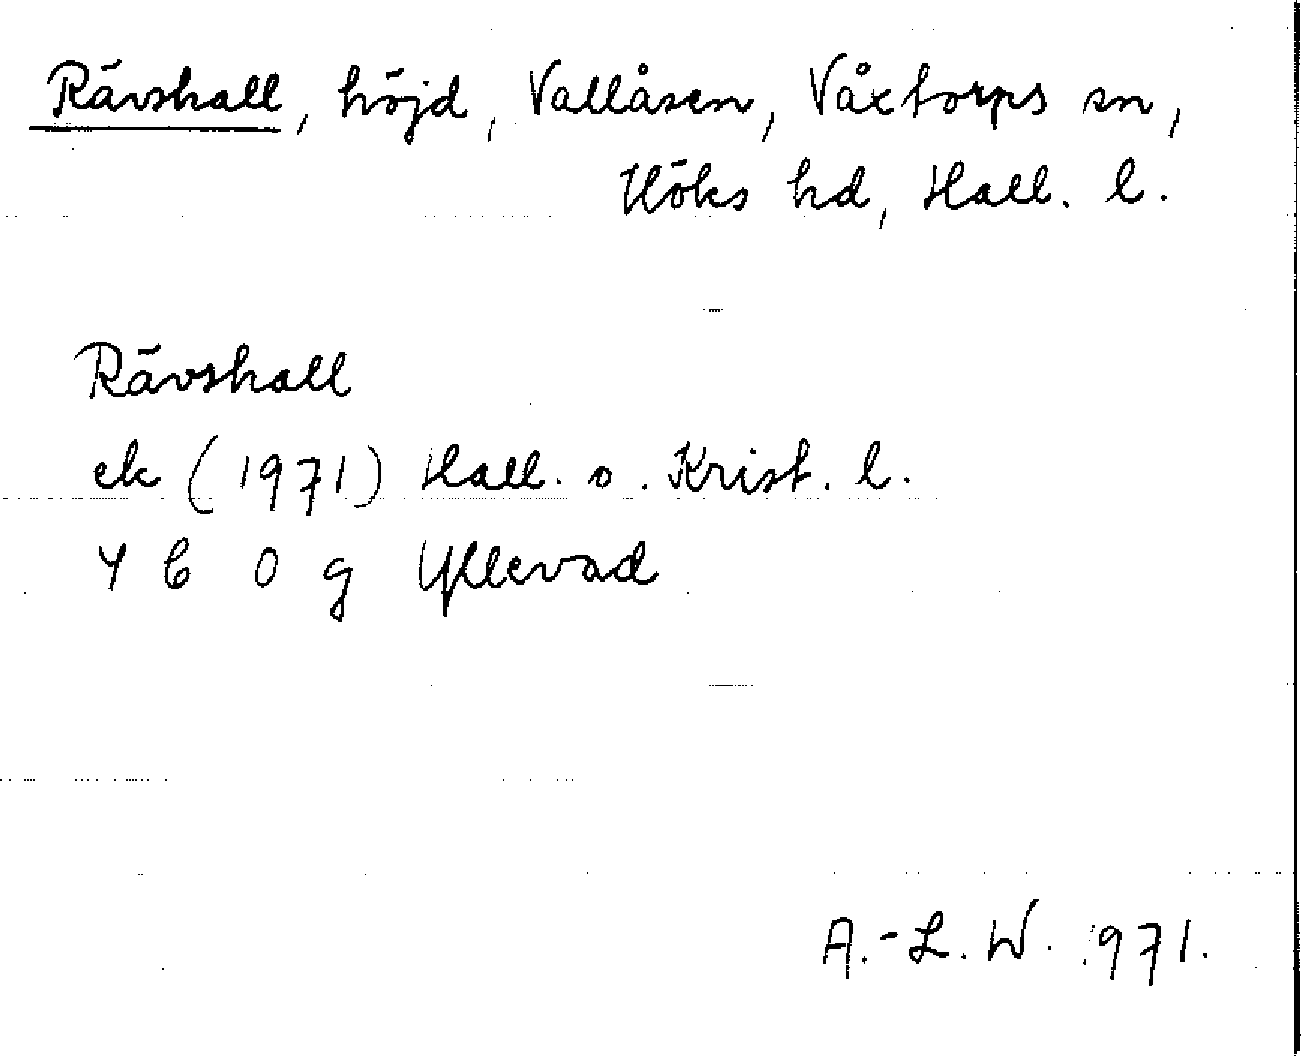 Rävshall, höjd, Vallåsen, Våxtorps sn,
Höks hd, Hall. l.
Rävshall
ek (1971) Hall. o. Krist. l.
4 C 0 g Yllevad
A.-L. W. 1971.